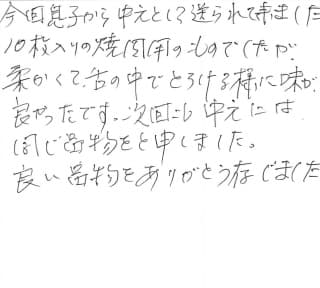 今回息子から中元として送られて来ました
10枚入りの焼肉用のものでしたが、
柔かくて、舌の中でとろける様に味が
良かったです。次回も中元には
同じ品物をと申しました。
良い品物をありがとう存じました